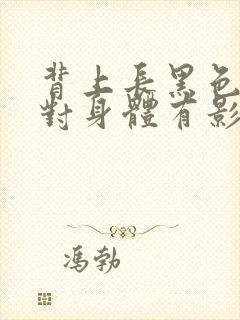 背上長黑色
對身體有影
馮勃